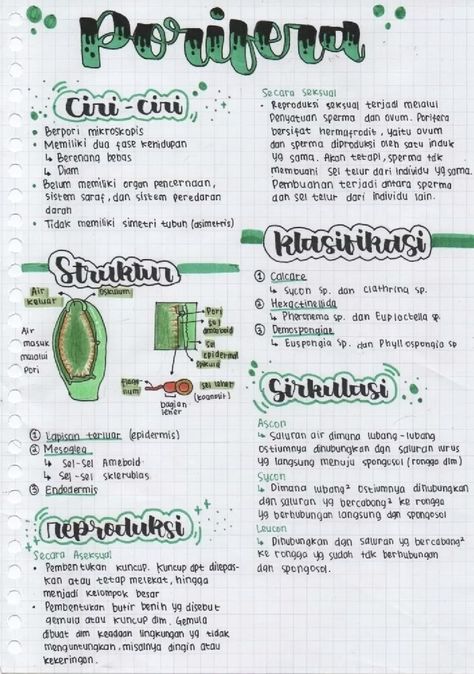 Porifera
Ciri-ciri
• Berpori mikroskopis
• Memiliki dua fase kehidupan
↳ Berenang bebas
↳ Diam
• Belum memiliki organ pencernaan,
sistem saraf, dan sistem peredaran
darah
• Tidak memiliki simetri tubuh (asimetris)
Struktur
Air
keluar
Oskulum
Air
masuk
melalui
Pori
Pori
Sel
ameboid
Sel
epidermal
Spikula
Flage
llum
Sel leher
(koanosit)
bagian
leher
① Lapisan terluar (epidermis)
② Mesoglea
↳ Sel-sel Ameboid
↳ Sel-sel Sklerublas
③ Endodermis
reproduksi
Secara Aseksual
• Pembentukan kuncup. Kuncup dpt dilepas-
kan atau tetap melekat, hingga
menjadi kelompok besar
• Pembentukan butir benih yg disebut
gemula atau kuncup dlm. Gemula
dibuat dlm keadaan lingkungan yg tidak
menguntungkan, misalnya dingin atau
kekeringan.
Secara Seksual
• Reproduksi seksual terjadi melalui
Penyatuan sperma dan ovum. Porifera
bersifat hermafrodit, yaitu ovum
dan sperma diproduksi oleh satu induk
yg sama. Akan tetapi, sperma tdk
membuahi sel telur dari individu yg sama.
Pembuahan terjadi antara sperma
dan sel telur dari individu lain.
Klasifikasi
① Calcare
↳ Sycon sp. dan Clathrina sp.
② Hexactinellida
↳ Pheronema sp. dan Euplectella sp.
③ Demospongiae
↳ Euspongia sp. dan Phyllospongia sp
Sirkulasi
Ascon
↳ Saluran air dimana lubang-lubang
Ostiumnya dihubungkan dgn saluran lurus
yg langsung menuju spongosol (rongga dlm)
Sycon
↳ Dimana lubang² Ostiumnya dihubungkan
dgn saluran yg bercabang² ke rongga
yg berhubungan langsung dgn spongosol
Leucon
↳ Dihubungkan dgn saluran yg bercabang²
ke rongga yg sudah tdk berhubungan
dgn spongosol.